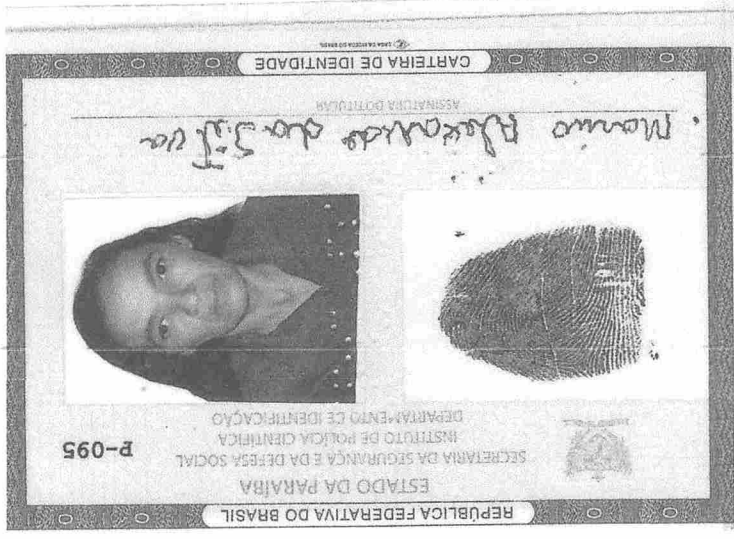 REPÚBLICA FEDERATIVA DO BRASIL
ESTADO DA PARAÍBA
SECRETARIA DA SEGURANÇA E DA DEFESA SOCIAL
INSTITUTO DE POLÍCIA CIENTÍFICA
DEPARTAMENTO DE IDENTIFICAÇÃO
P-095
da Silva
ASSINATURA DO TITULAR
CARTEIRA DE IDENTIDADE
CASA DA MOEDA DO BRASIL